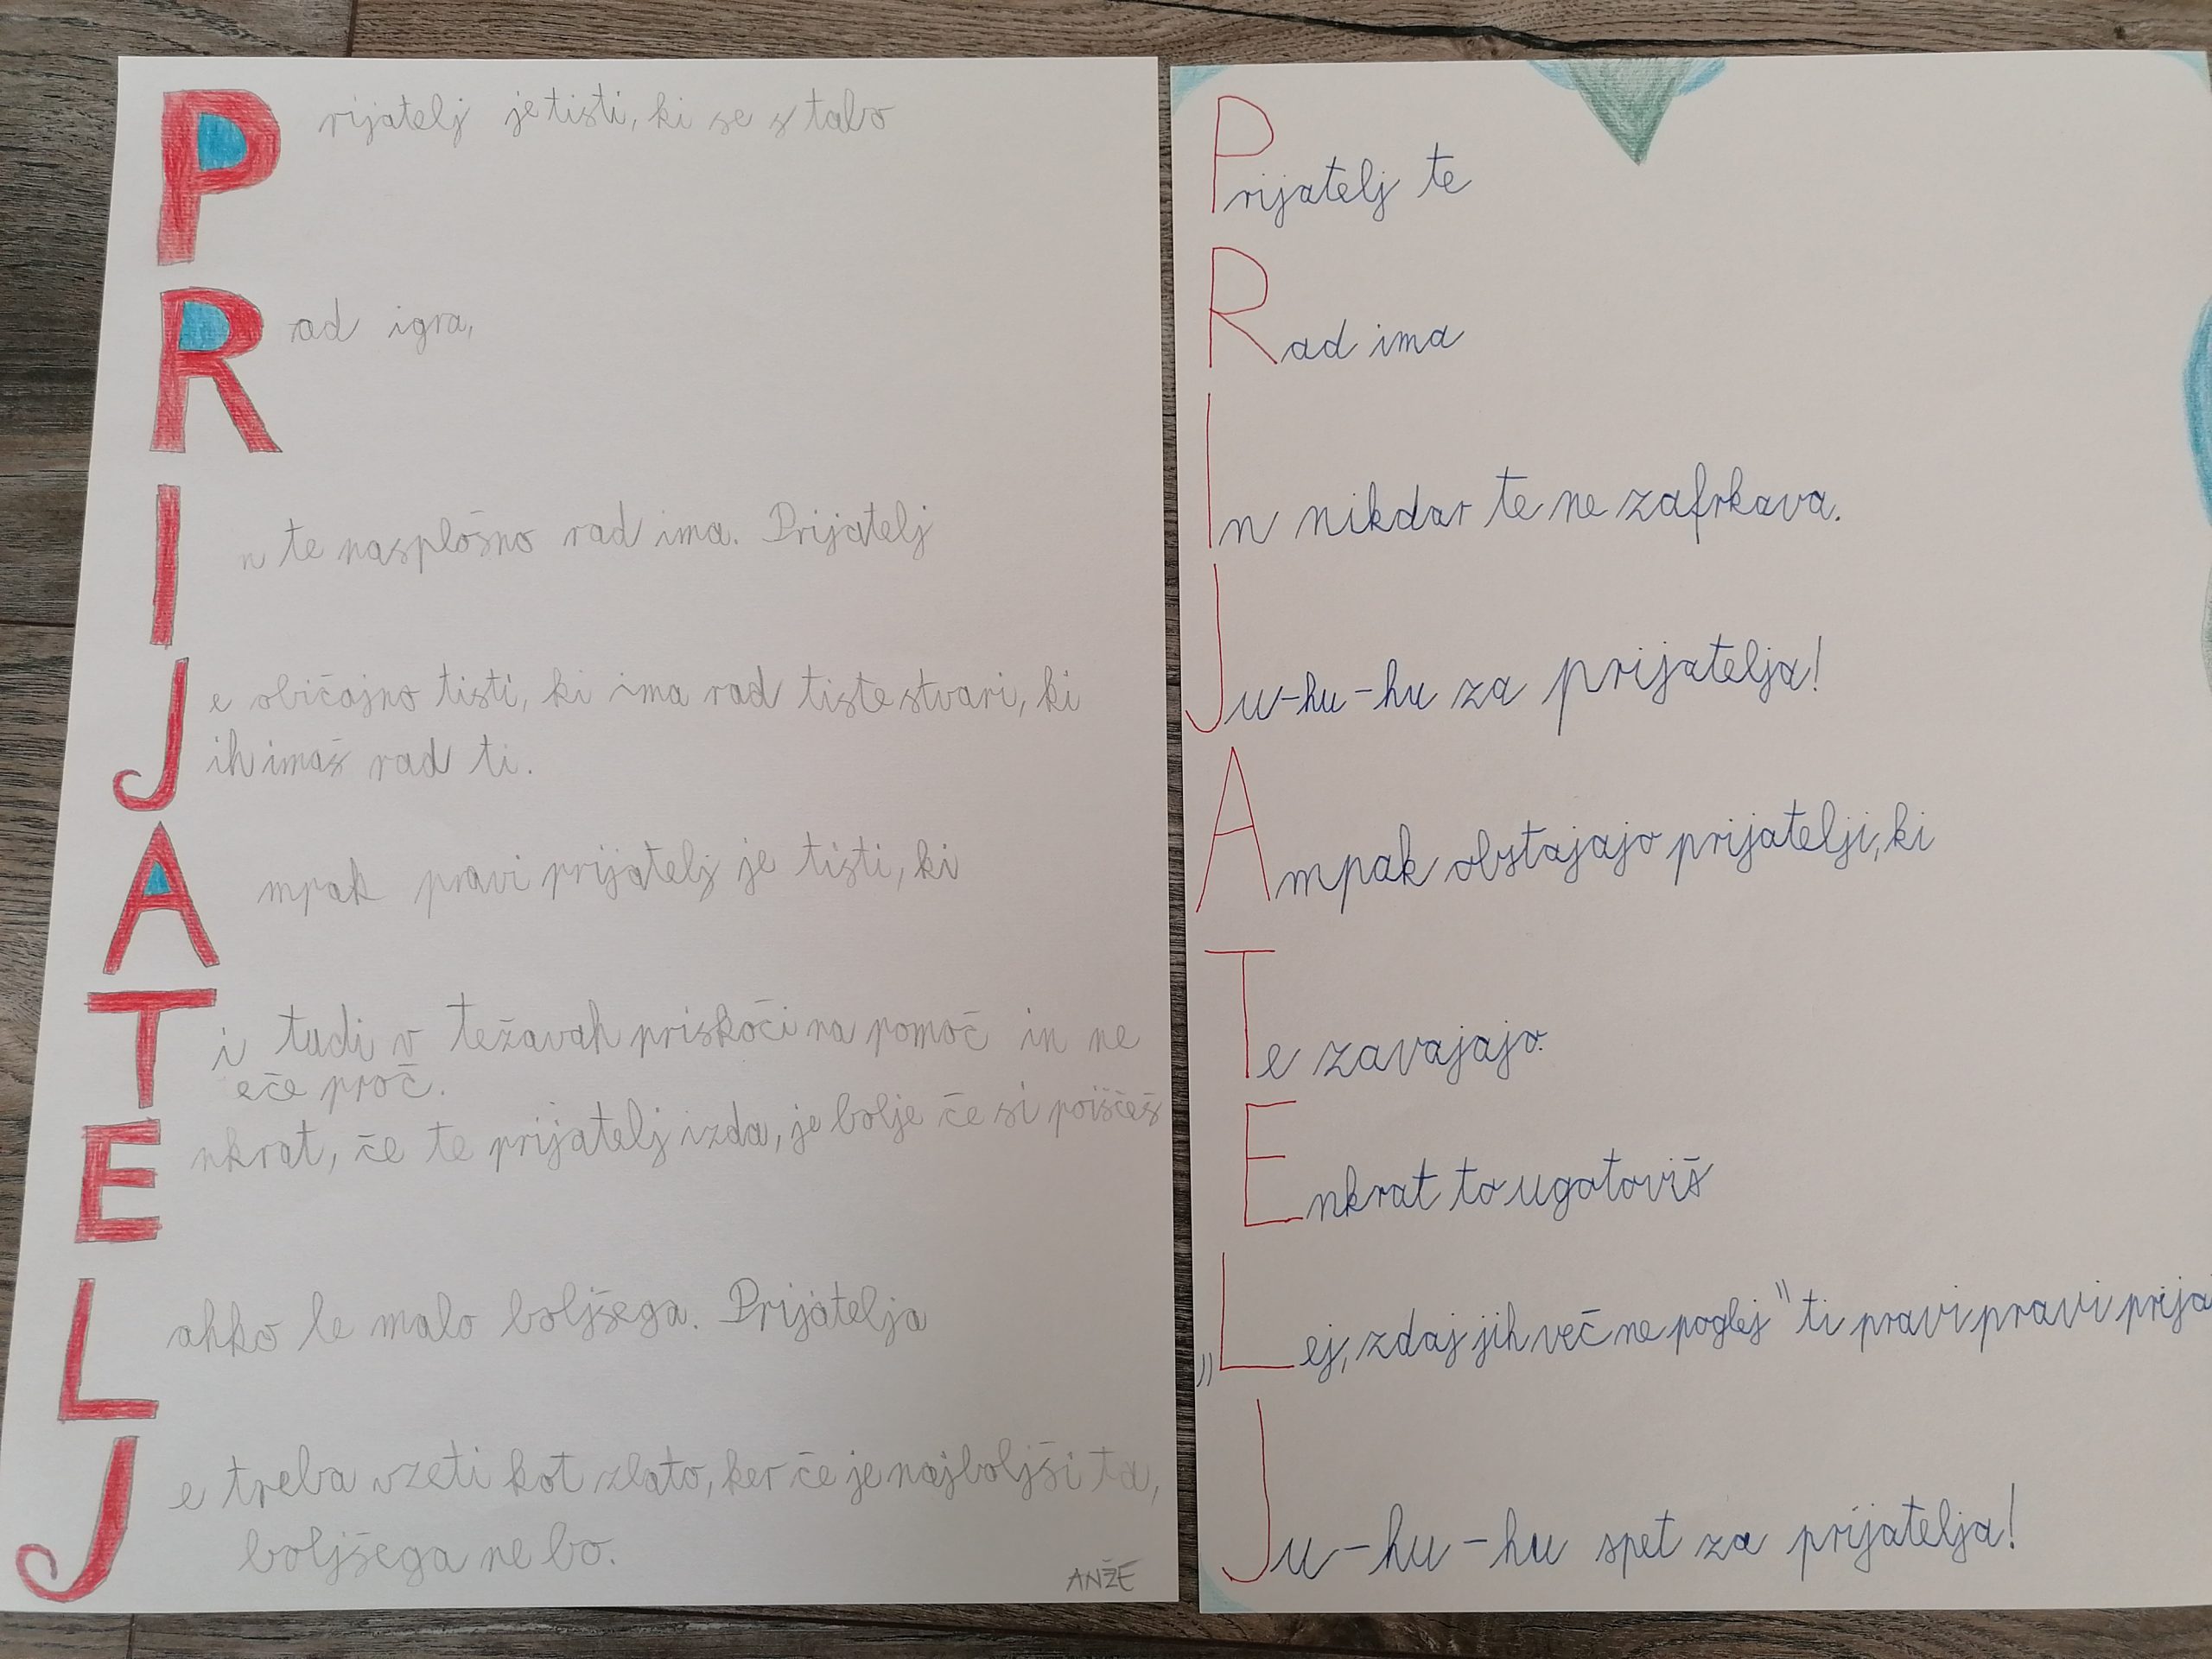 Prijatelj je tisti, ki se s tabo
Rad igra,
In te nasplošno rad ima. Prijatelj
Je običajno tisti, ki ima rad tiste stvari, ki
jih imaš rad ti.
Ampak pravi prijatelj je tisti, ki
Ti tudi v težavah priskoči na pomoč in ne
teče proč.
Enkrat, če te prijatelj izda, je bolje če si poiščeš
Lahko le malo boljšega. Prijatelja
Je treba vzeti kot zlato, ker če je najboljši ta,
boljšega ne bo.
ANŽE
Prijatelj te
Rad ima
In nikdar te ne zafrkava.
Ju-hu-hu za prijatelja!
Ampak obstajajo prijatelji, ki
Te zavajajo.
Enkrat to ugotoviš
„Lej, zdaj jih več ne poglej" ti pravi pravi prija
Ju-hu-hu spet za prijatelja!